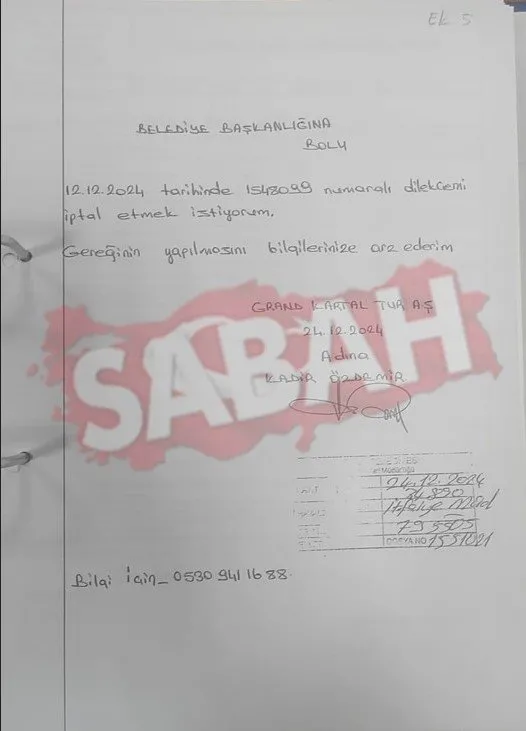 EK 5
BELEDİYE BAŞKANLIĞINA
BOLU
12.12.2024 tarihinde 1548099 numaralı dilekcemi
iptal etmek istiyorum.
Gereğinin yapılmasını bilgilerinize arz ederim
GRAND KARTAL TUR AŞ
24.12.2024
Adına
KADİR ÖZDEMİR
SABAH
24.12.2024
34890
İtfaiye Müd
795505
DOSYA NO 1551021
Bilgi İçin_ 0530 941 16 88